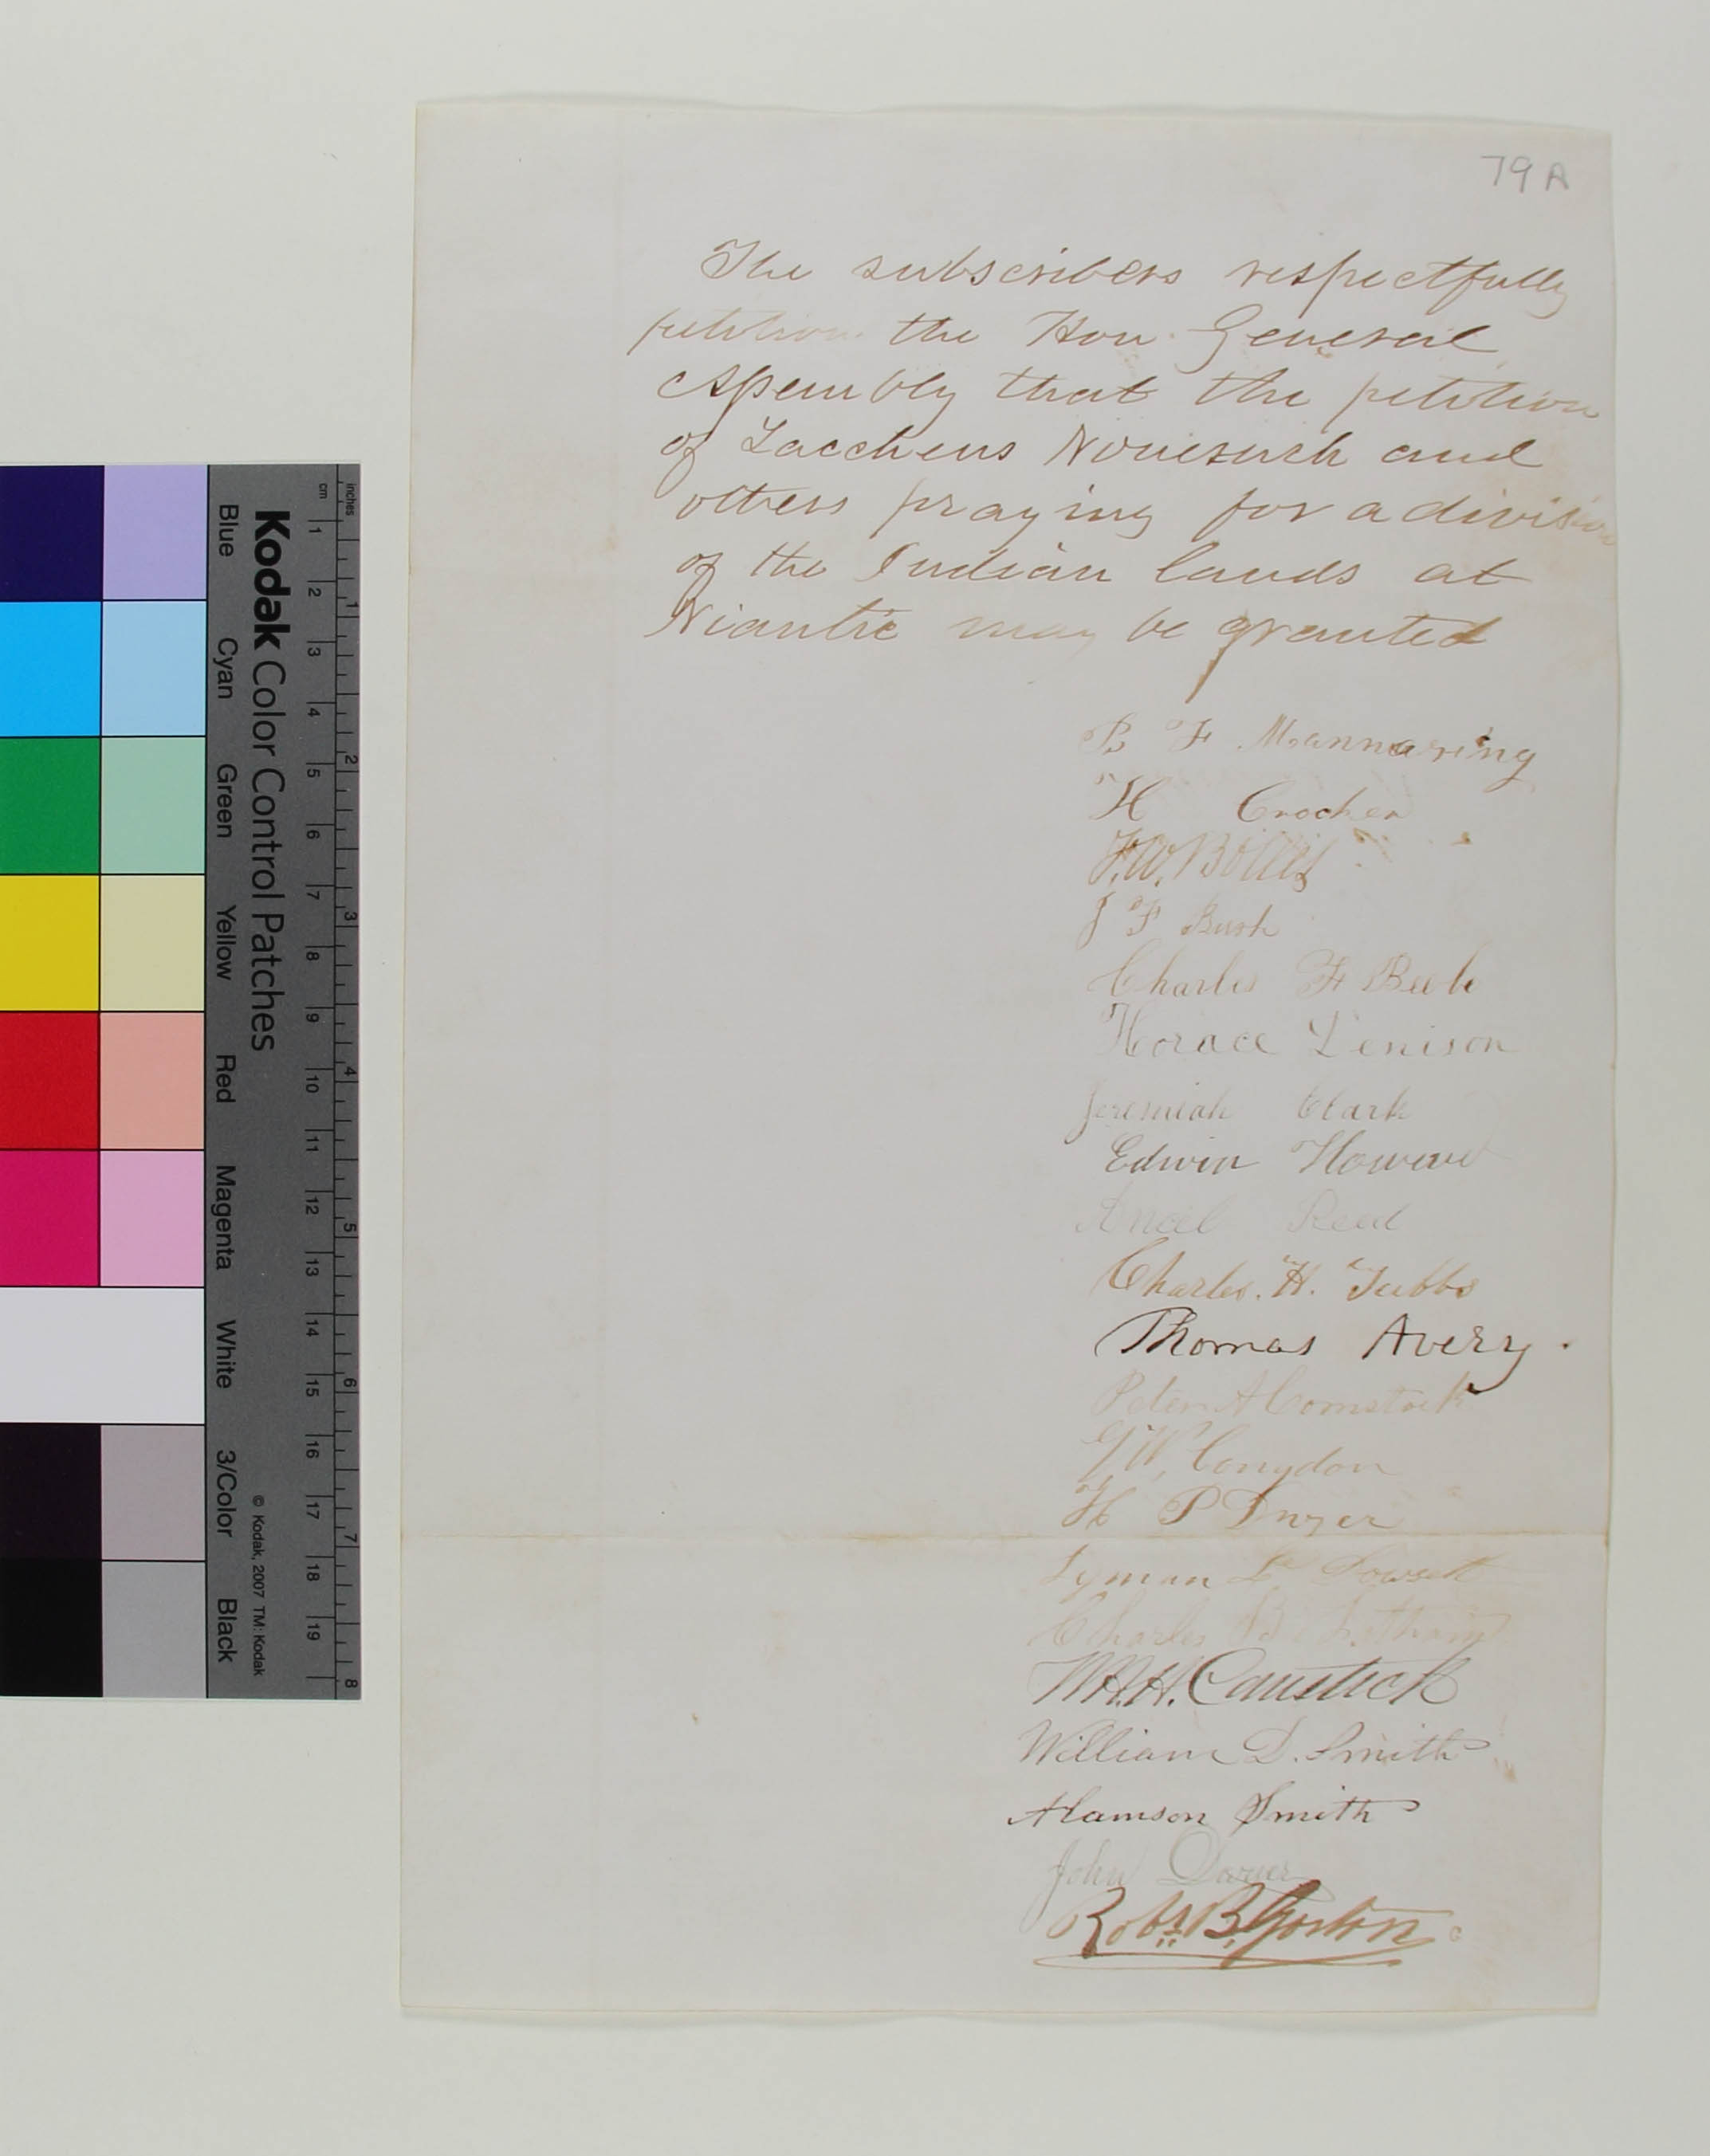 79A
The subscribers respectfully
petition the Hon. General
Assembly that the petition
of Zaccheus Nonesuch and
others praying for a division
of the Indian lands at
Niantic may be granted
B F Mannaring
H Crocker
F.W. Bolles
J F Bush
Charles F Beebe
Horace Denison
Jeremiah Clark
Edwin Howard
Ancel Reed
Charles. H. Tubbs
Thomas Avery.
Peter A Comstock
G W, Congdon
H P Dwyer
Lyman L Dowsett
Charles B
W.H.H. Caustick
William D. Smith
Alamson Smith
John
Robt. B. Gorton
inches
cm
1 2 3 4 5 6 7 8 9 10 11 12 13 14 15 16 17 18 19
1 2 3 4 5 6 7 8
Kodak Color Control Patches
© Kodak, 2007 TM: Kodak
Blue Cyan Green Yellow Red Magenta White 3/Color Black